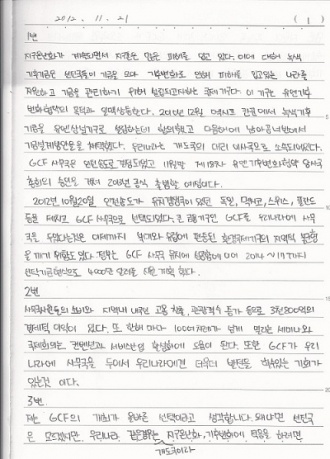 2012. 11. 21 ( 1 )
1번
지구온난화가 계속되면서 지구촌은 많은 피해를 입고 있다. 이에 대해 녹색
기후기금은 선진국들이 기금을 모아 기후변화로 인해 피해를 입고있는 나라를
지원하고 기금을 관리하기 위해 설립되고자하는 국제기구다. 이 기구는 유엔기후
변화협약의 목적과 일맥상통한다. 2010년 12월 멕시코 칸쿤에서 녹색기후
기금을 유엔 상설기구로 설립하는데 합의했고 다음해에 남아공 더반에서
기금설계방안을 채택했다. 우리나라는 개도국의 미래 이사국으로 소속되어있다.
GCF 사무국은 인천송도로 결정되었고 11월말 제18차 유엔기후변화협약 당사국
총회의 승인을 거쳐 2013년 공식 출범할 예정이다.
2012년 10월20일 인천송도가 유치경쟁국이 였던 독일, 멕시코, 스위스, 폴란드
등을 제치고 GCF 사무국으로 선택되었다. 큰 금융기구인 GCF를 우리나라에 사무
국을 두었다는것은 이제까지 북미와 유럽에 편중된 환경국제기구의 지역적 불균형
을 깨기 위함도 있다. 정부는 GCF 사무국 유치에 성공함에 이어 2014~17년까지
4000만 달러를 계획 한다.
2번
사무국직원들의 소비와 지역내 내국인 고용 창출, 관광객수 증가 등으로 3천800억의
경제적 이익이 있다. 또 한해 마다 100여차례가 넘게 열리는 세미나와
국제회의는 컨벤션과 서비스산업 활성화에 도움이 된다. 또한 GCF가 우리
나라에 사무국을 두어서 우리나라에겐 더욱더 발전을 할수있는 기회가
있는것 이다.
3번
저는 GCF의 개최가 올바른 선택이라고 생각합니다. 왜냐하면 선진국
은 모르겠지만, 우리나라 같은경우는 지구온난화, 기후변화에 적응을 하려면
개도국이라